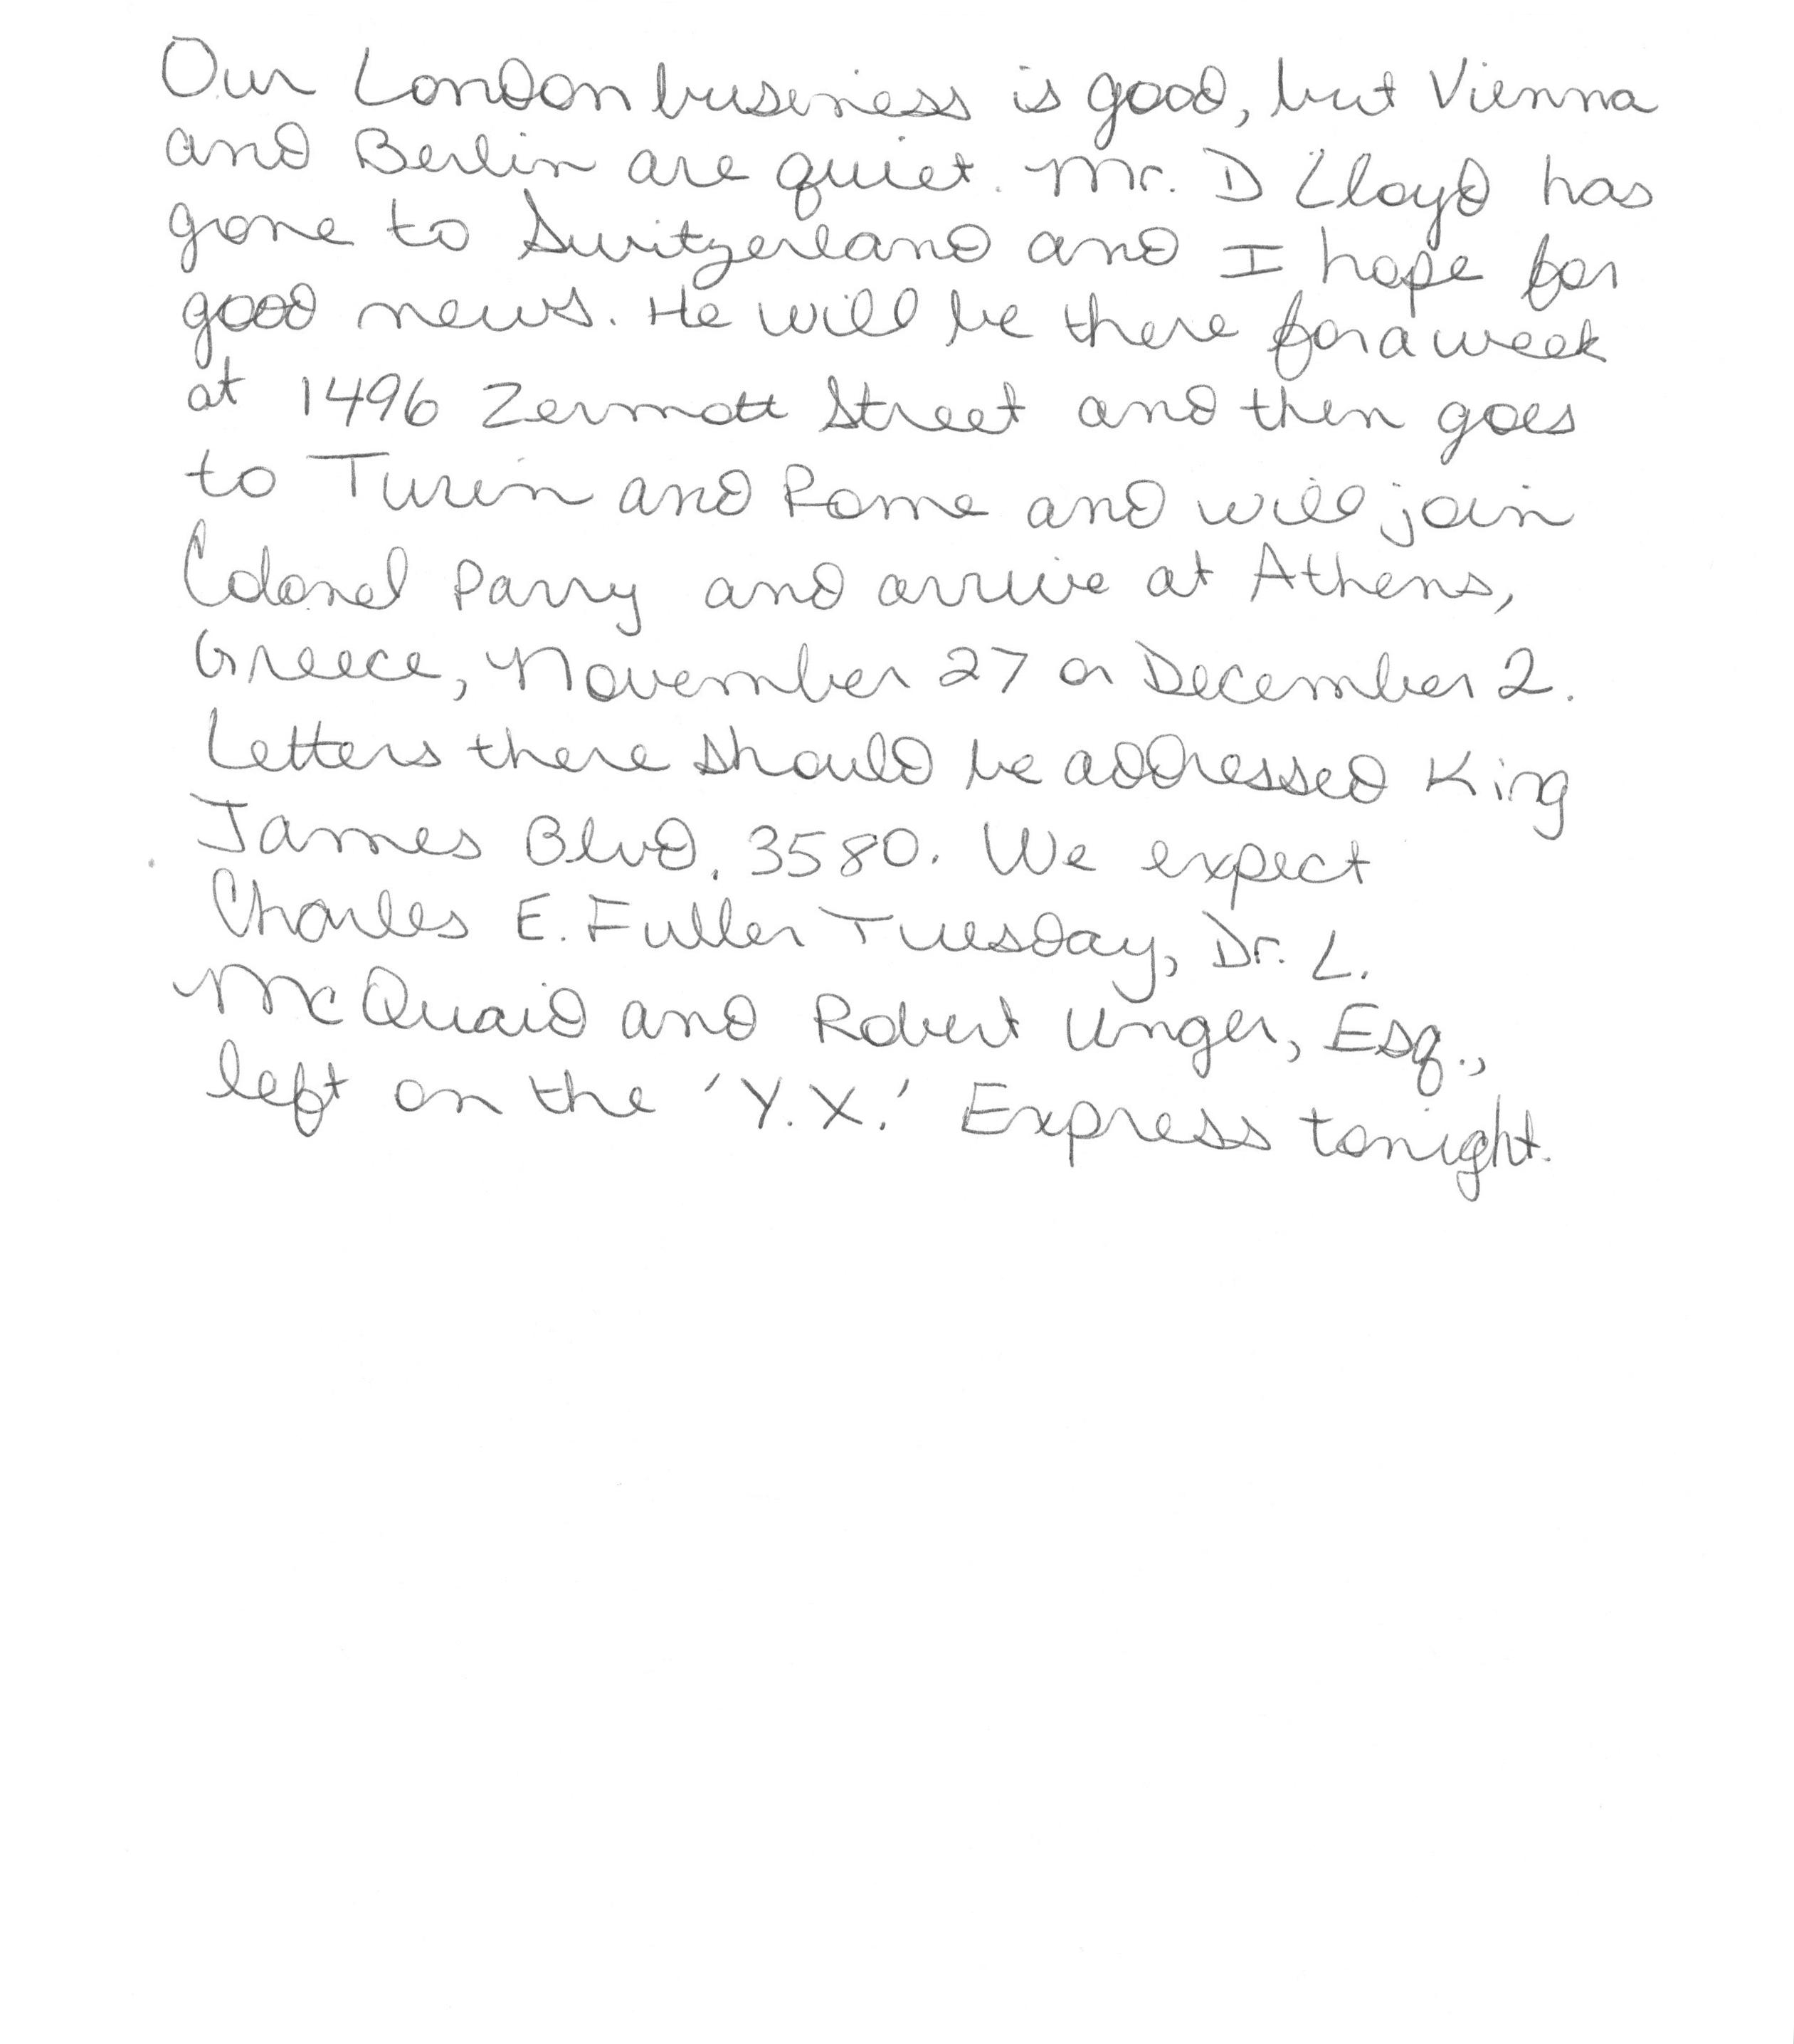 Our London business is good, but Vienna
and Berlin are quiet. Mr. D Lloyd has
gone to Switzerland and I hope for
good news. He will be there for a week
at 1496 Zermott Street and then goes
to Turin and Rome and will join
Colonel Parry and arrive at Athens,
Greece, November 27 or December 2.
Letters there should be addressed King
James Blvd. 3580. We expect
Charles E. Fuller Tuesday, Dr. L.
McQuaid and Robert Unger, Esq.,
left on the 'Y.X.' Express tonight.